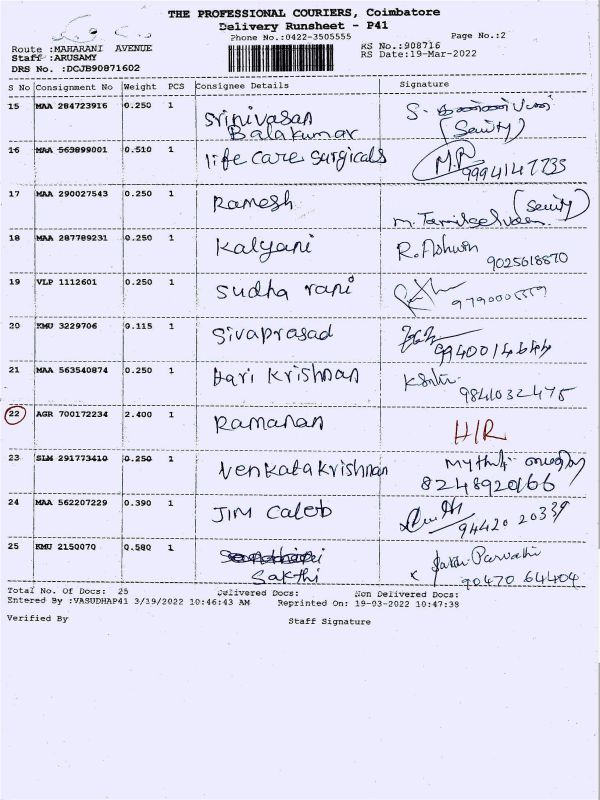 THE PROFESSIONAL COURIERS, Coimbatore
Delivery Runsheet - P41
Phone No.:0422-3505555
Page No.:2
Route :MAHARANI AVENUE
KS No.:908716
Staff :ARUSAMY
RS Date:19-Mar-2022
DRS No. :DCJB90871602
S No Consignment No Weight PCS Consignee Details Signature
15 MAA 284723916 0.250 1 Srinivasan S.
Balakumar (Seuity)
16 MAA 563899001 0.510 1 life care surgicals M.R
9994147733
17 MAA 290027543 0.250 1 Ramesh (Seuity)
18 MAA 287789231 0.250 1 Kalyani R. Ashwin
9025618870
19 VLP 1112601 0.250 1 Sudha rani
20 KMU 3229706 0.115 1 Sivaprasad
9940014644
21 MAA 563540874 0.250 1 Hari Krishnan
9841032475
22 AGR 700172234 2.400 1 Ramanan H/R
23 SLM 291773410 0.250 1 Venkatakrishnan
8248920166
24 MAA 562207229 0.390 1 JIM Caleb
94420 20339
25 KMU 2150070 0.580 1 Parvathi
Sakthi
90470 64404
Total No. Of Docs: 25 Delivered Docs: Non Delivered Docs:
Entered By :VASUDHAP41 3/19/2022 10:46:43 AM Reprinted On: 19-03-2022 10:47:38
Verified By Staff Signature